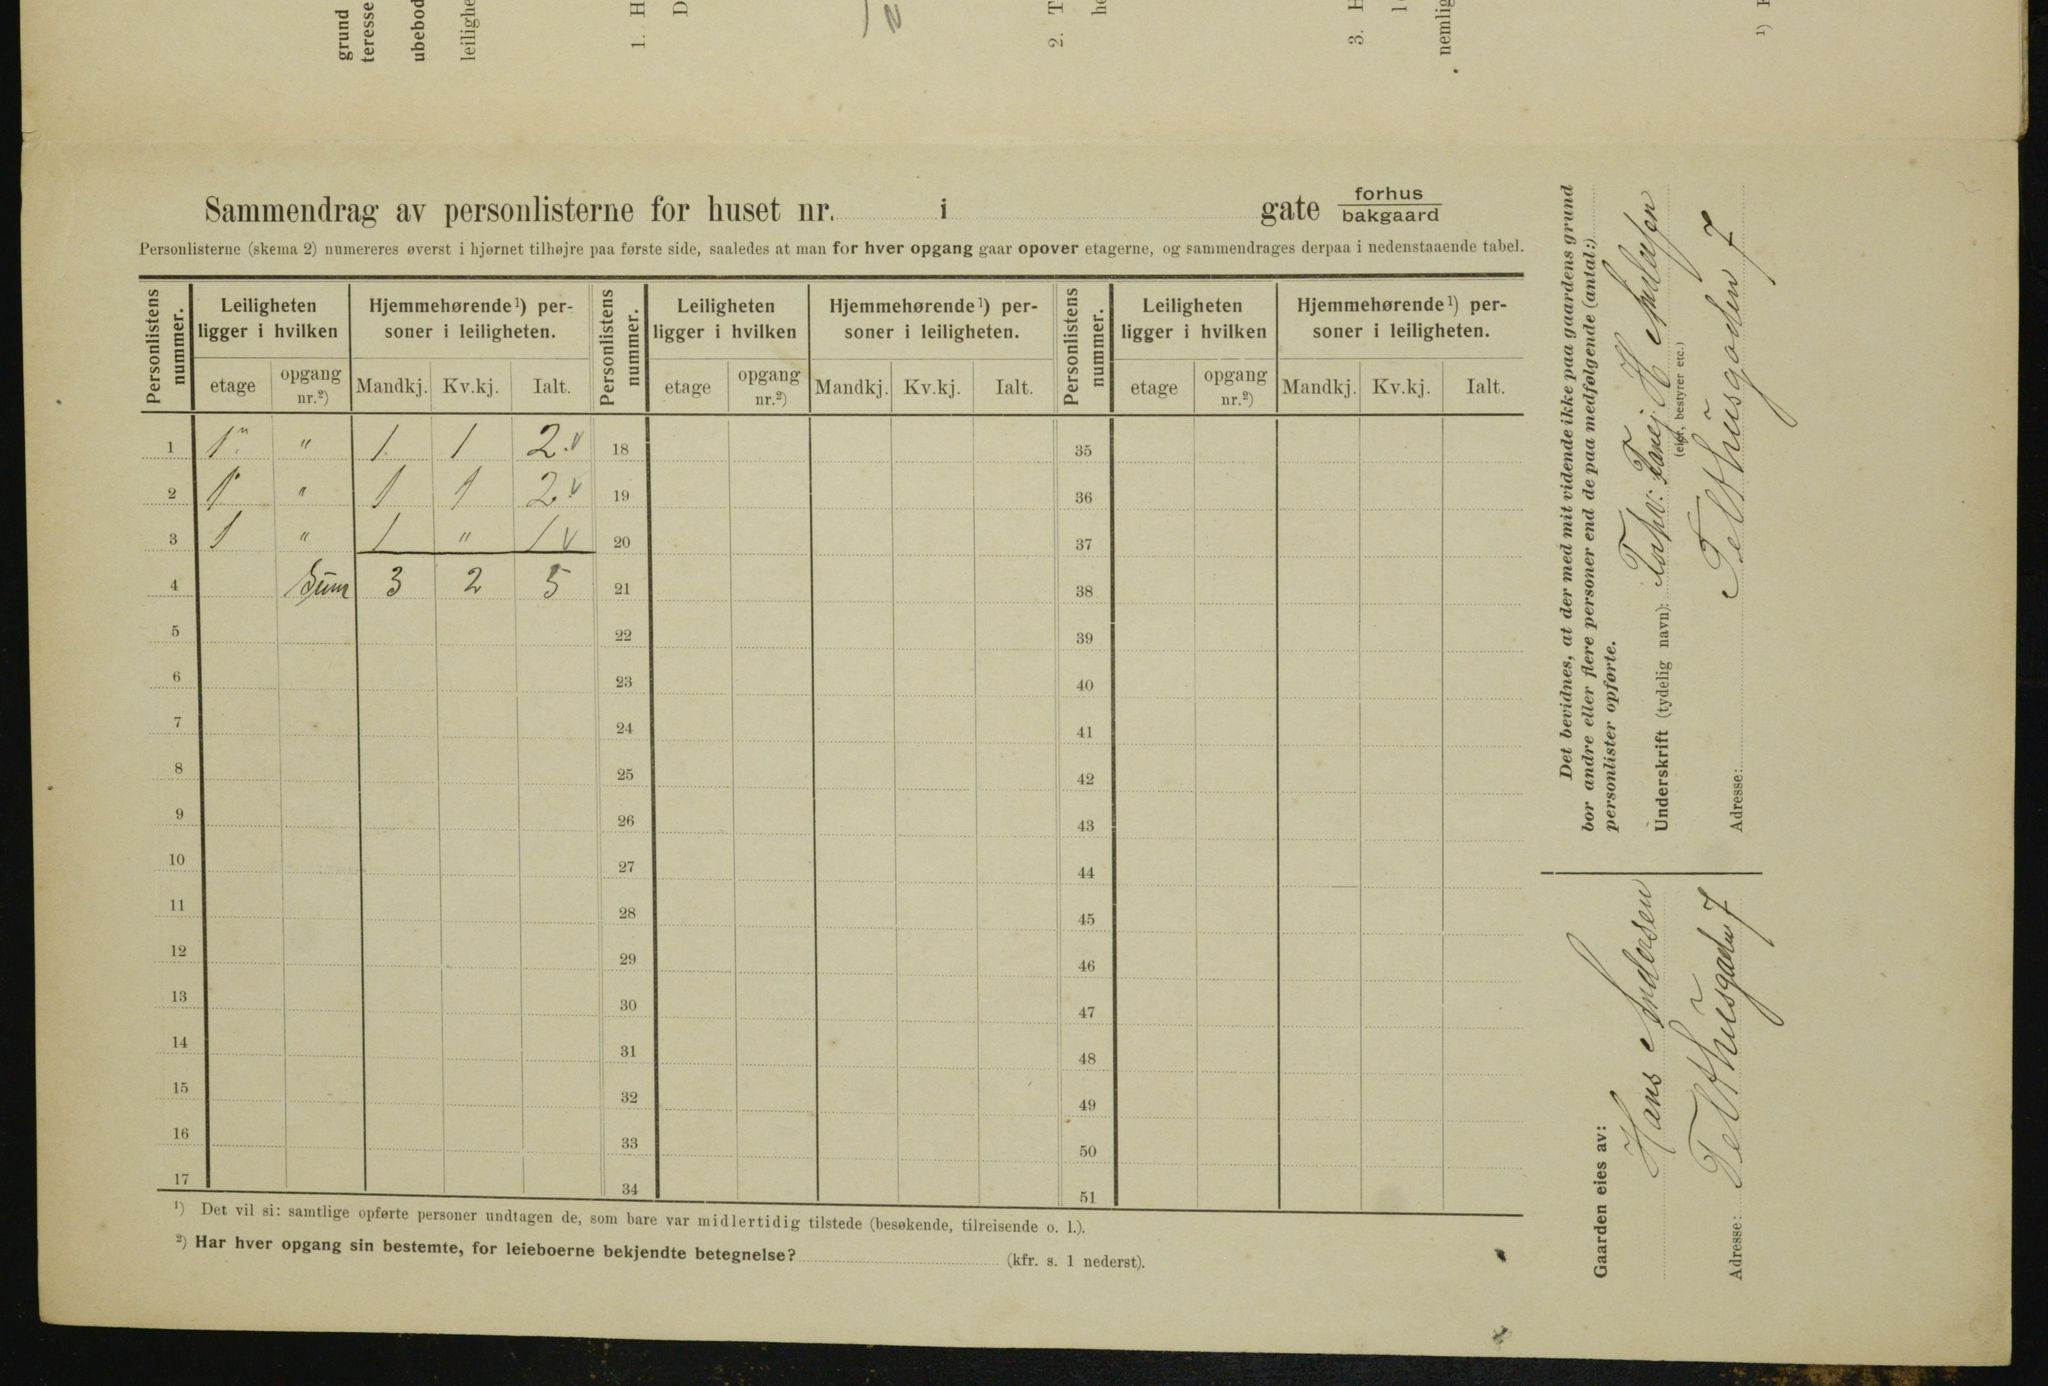 grund
teresse
ubebod
leilighe
1. H
D
2. T
he
3. H
nemlig
¹)
Sammendrag av personlisterne for huset nr. i gate forhus
bakgaard
Personlisterne (skema 2) numereres øverst i hjørnet tilhøjre paa første side, saaledes at man for hver opgang gaar opover etagerne, og sammendrages derpaa i nedenstaaende tabel.
Personlistens nummer. Leiligheten ligger i hvilken Hjemmehørende¹) personer i leiligheten. Personlistens nummer. Leiligheten ligger i hvilken Hjemmehørende¹) personer i leiligheten. Personlistens nummer. Leiligheten ligger i hvilken Hjemmehørende¹) personer i leiligheten.
etage opgang nr.²) Mandkj. Kv.kj. Ialt. etage opgang nr.²) Mandkj. Kv.kj. Ialt. etage opgang nr.²) Mandkj. Kv.kj. Ialt.
1 1 " 1 1 2 v 18 35
2 1 " 1 1 2 v 19 36
3 1 " 1 " 1 v 20 37
4 Sum 3 2 5 21 38
5 22 39
6 23 40
7 24 41
8 25 42
9 26 43
10 27 44
11 28 45
12 29 46
13 30 47
14 31 48
15 32 49
16 33 50
17 34 51
¹) Det vil si: samtlige opførte personer undtagen de, som bare var midlertidig tilstede (besøkende, tilreisende o. l.).
²) Har hver opgang sin bestemte, for leieboerne bekjendte betegnelse? (kfr. s. 1 nederst).
Det bevidnes, at der med mit vidende ikke paa gaardens grund
bor andre eller flere personer end de paa medfølgende (antal:)
personlister opførte.
Underskrift (tydelig navn):
(eier, bestyrer etc.)
Adresse: Telthusgaden 7
Gaarden eies av:
Hans Andersen
Adresse: Telthusgaden 7